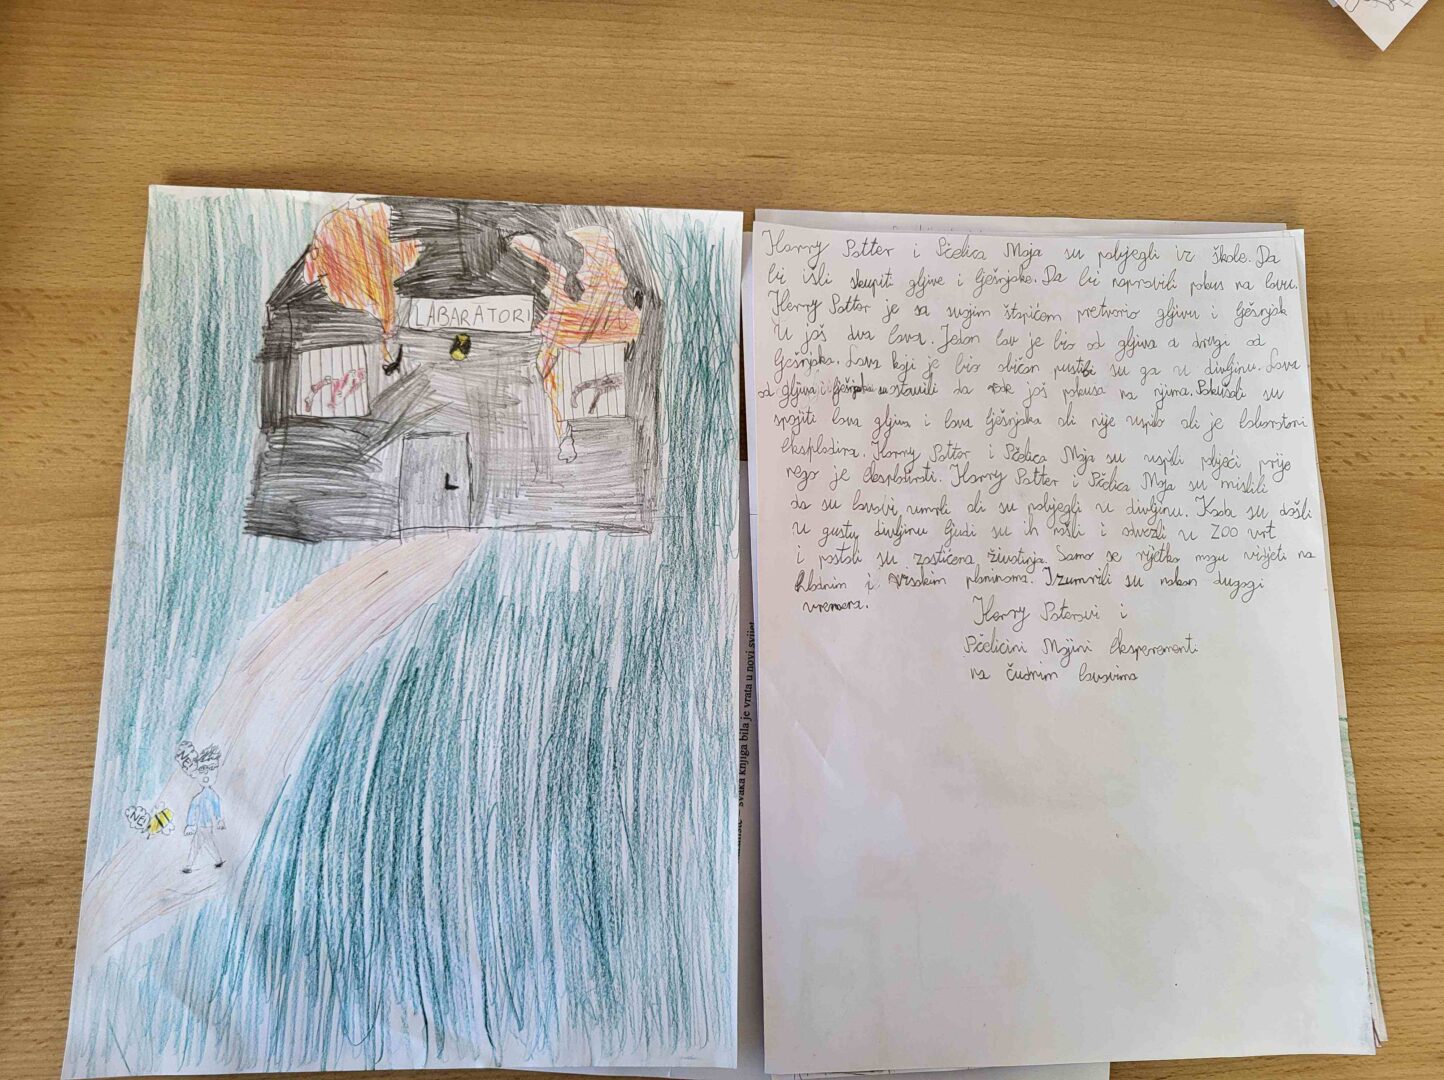 LABARATORI
NE
NE
Harry Potter i Pčelica Maja su pobjegli iz škole. Da
bi išli skupiti gljive i lješnjake. Da bi napravili pokus na lavu.
Harry Potter je sa svojim štapićem pretvorio gljivu i lješnjak
U još dva lava. Jedan lav je bio od gljiva a drugi od
lješnjaka. Lava koji je bio običan pustili su ga u divljinu. Lava
od gljiva i lješnjaka su ostavili da rade još pokusa na njima. Pokušali su
spojiti lava gljiva i lava lješnjaka ali nije uspio ali je laboratori
eksplodira. Harry Potter i Pčelica Maja su uspjeli pobjeći prije
nego je eksplodirati. Harry Potter i Pčelica Maja su mislili
da su lavovi umrli ali su pobjegli u divljinu. Kada su došli
u gustu divljinu ljudi su ih našli i odvezli u ZOO vrt
i postali su zaštićena životinja. Samo se rijetko mogu vidjeti na
hladnim i visokim planinama. Izumrili su nakon dugogi
vremena.
Harry Poterovi i
Pčelicini Majini eksperementi
na čudnim lavovima
svaka knjiga bila je vrata u novi svijet